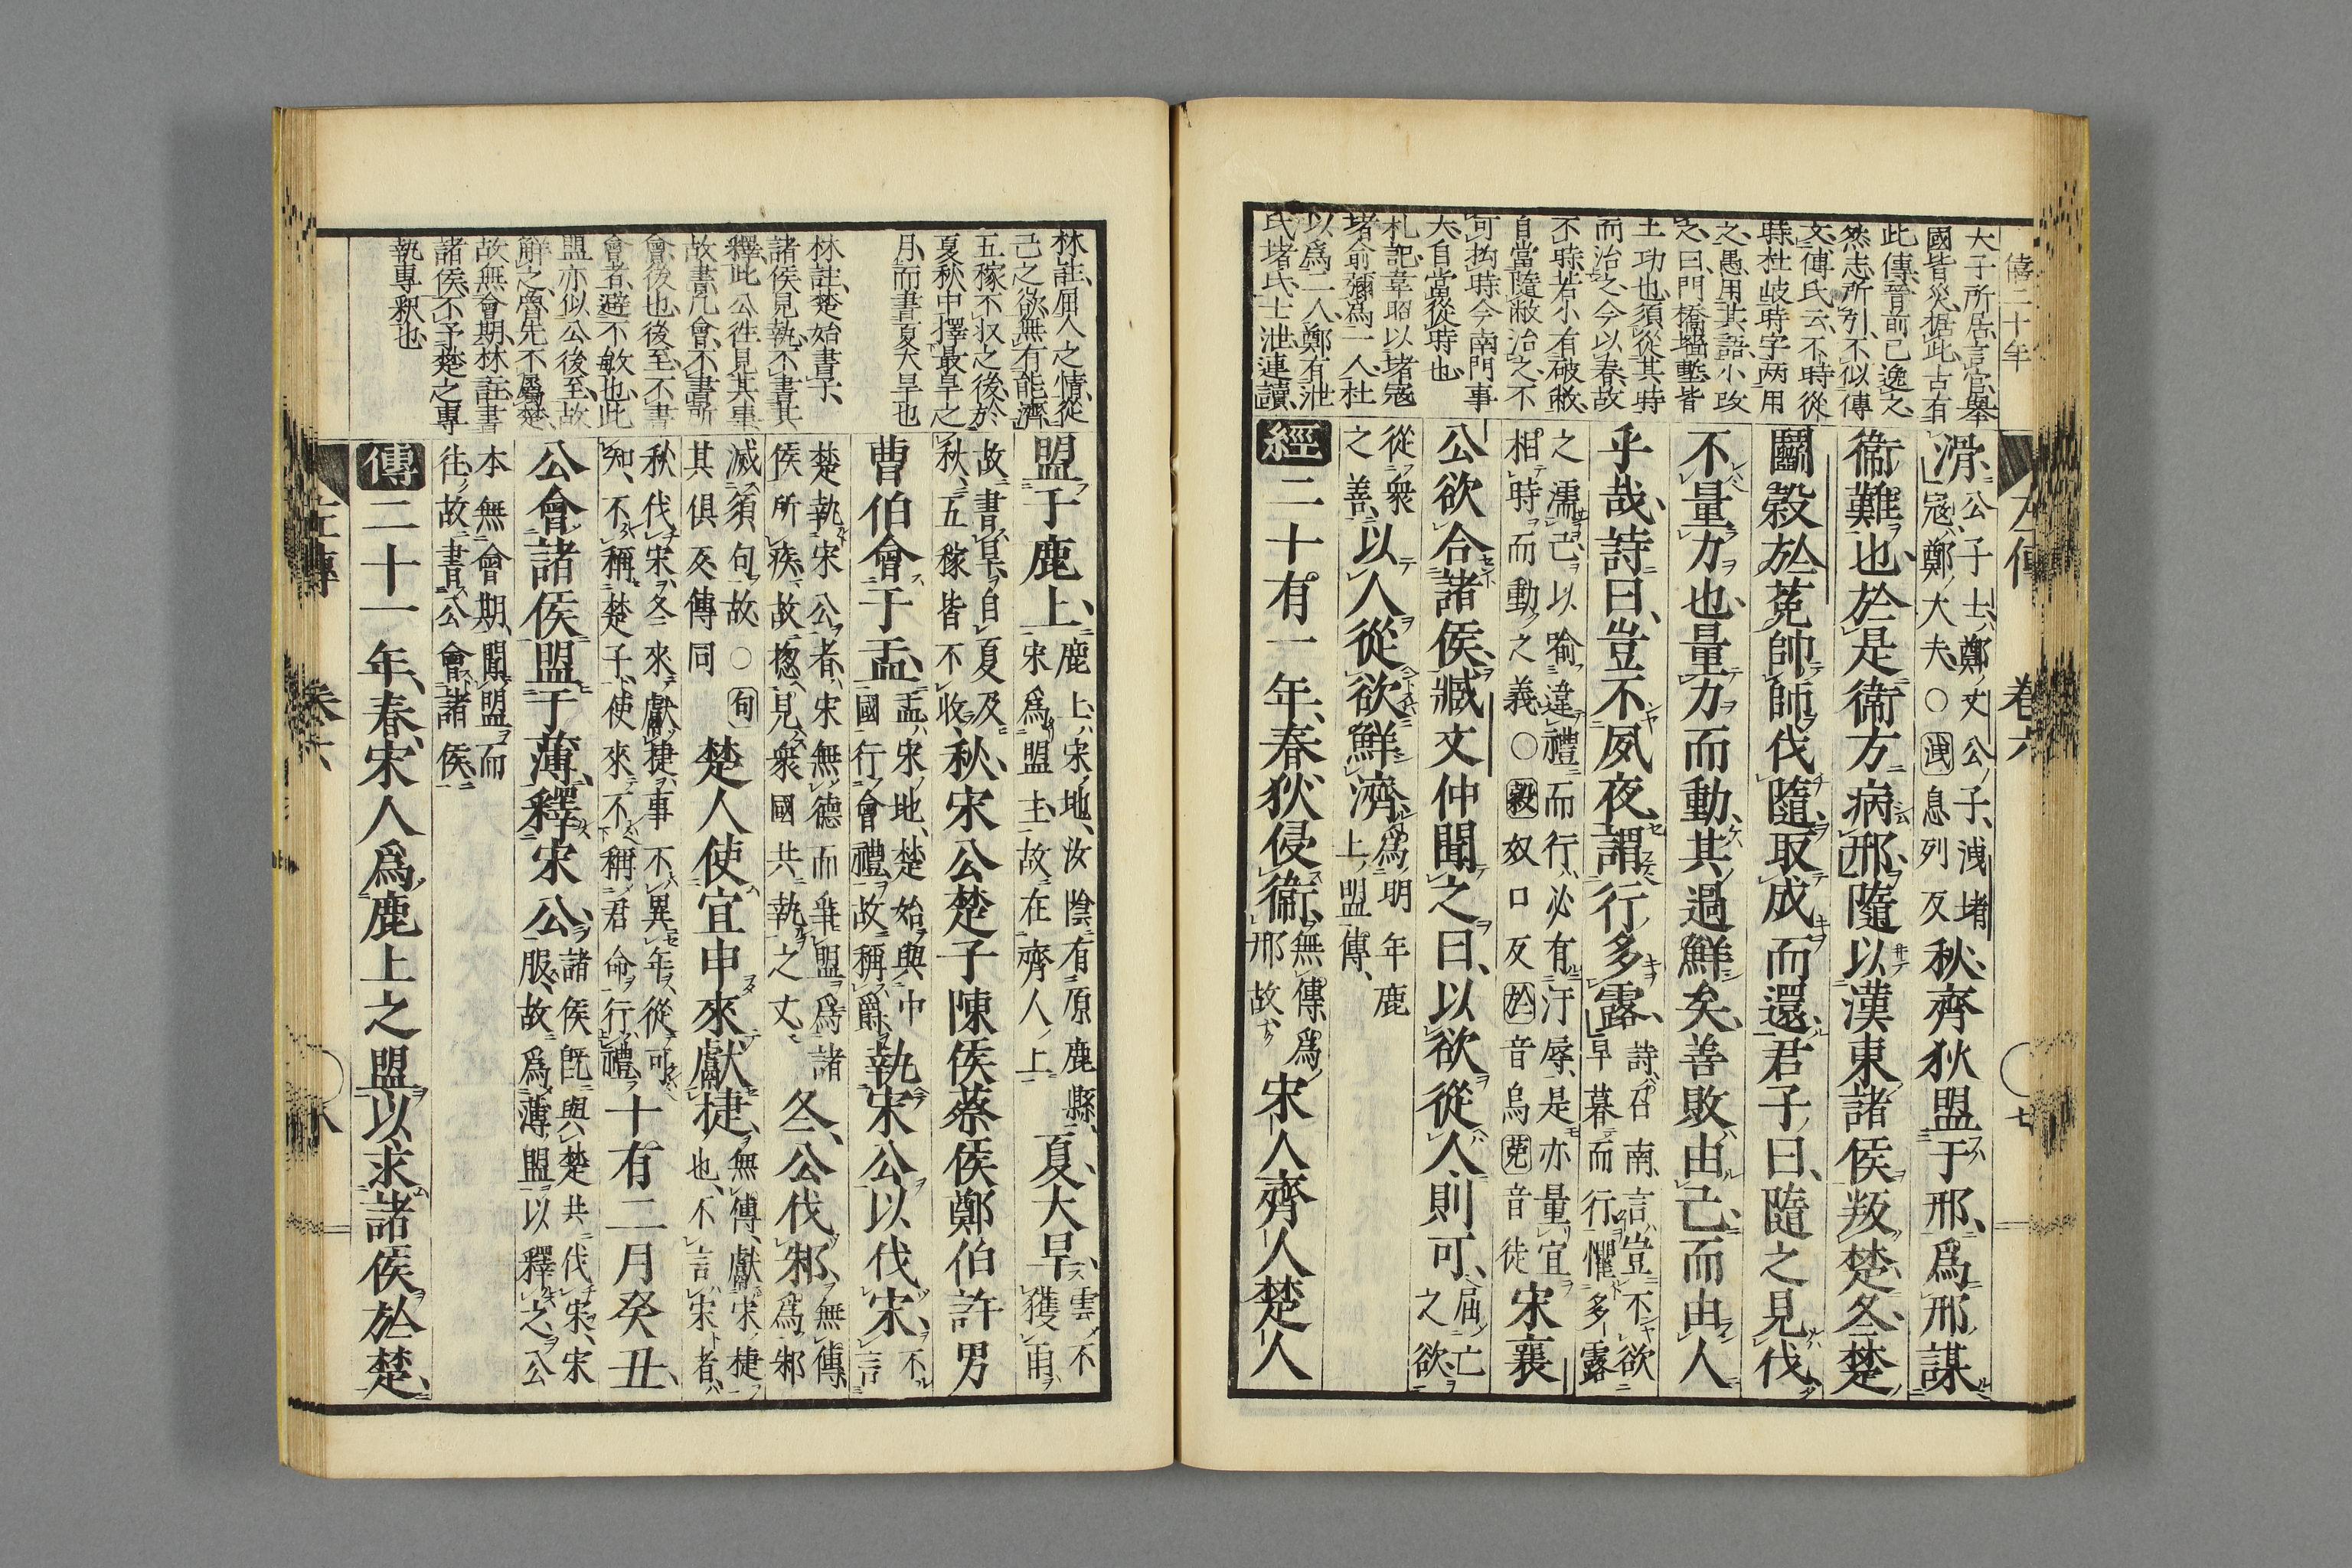 僖二十年
大子所居言官舉
國皆災據此古有
此傳晉前已逸之
然志所列不似傳
文傳氏云不時從
時杜岐時字两用
之愚用其語小攻
之曰門橋墻塹皆
土功也須從其時
而治之今以春故
不時若小有破敝
自當隨敝治之不
可拘時今南門事
大自當從時也
札記韋昭以堵寇
堵俞彌爲二人杜
以爲一人鄭有泄
氏堵氏士泄連讀
左傳 卷六 七
滑公子士鄭文公子洩堵
寇鄭大夫○洩息列反秋齊狄盟于邢爲邢謀
衞難也於是衞方病邢隨以漢東諸侯叛楚冬楚
鬭穀於菟帥師伐隨取成而還君子曰隨之見伐
不量力也量力而動其過鮮矣善敗由己而由人
乎哉詩曰豈不夙夜謂行多露詩召南言豈不欲
早暮而行懼多露
之濡己以喻違禮而行必有汙辱是亦量宜
相時而動之義○穀奴口反於音烏菟音徒宋襄
公欲合諸侯臧文仲聞之曰以欲從人則可屈亡
之欲
從衆
之善以人從欲鮮濟爲明年鹿
上盟傳
經二十有一年春狄侵衞無傳爲
邢故宋人齊人楚人
林註屈人之情從
己之欲無有能濟
五稼不収之後於
夏秋中擇最旱之
月而書夏大旱也
林註楚始書子
諸侯見執不書其
釋此公徃見其事
故書凡會不書所
會後也後至不書
會者避不敏也此
盟亦似公後至故
解之魯先不屬楚
故無會期林註書
諸侯不予楚之專
執專釈也
盟于鹿上鹿上宋地汝陰有原鹿縣
宋爲盟主故在齊人上夏大旱雲不
獲雨
故書旱自夏及
秋五稼皆不收秋宋公楚子陳侯蔡侯鄭伯許男
曹伯會于盂盂宋地楚始與中
國行會禮故稱爵執宋公以伐宋不
言
楚執宋公者宋無德而爭盟爲諸
侯所疾故揔見衆國共執之文冬公伐邾無傳
爲邾
滅須句故○句
其俱反傳同楚人使宜申來獻捷無傳獻宋捷
也不言宋者
秋伐宋冬來獻捷事不異年從可
知不稱楚子使來不稱君命行禮十有二月癸丑
公會諸侯盟于薄釋宋公諸侯旣與楚共伐宋宋
服故爲薄盟以釋之公
本無會期聞盟而
往故書公會諸侯
傳二十一年春宋人爲鹿上之盟以求諸侯於楚
左傳 卷六 八